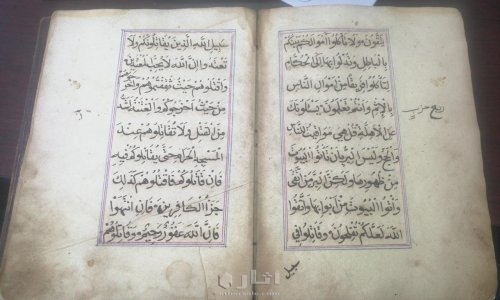 يتقون ولا تأكلوا أموالكم بينكم
بالباطل وتدلوا بها إلى الحكام
لتأكلوا فريقا من أموال الناس
بالإثم وأنتم تعلمون يسئلونك
عن الأهلة قل هي مواقيت للناس
والحج وليس البر بأن تأتوا البيوت
من ظهورها ولكن البر من اتقى
وأتوا البيوت من أبوابها واتقوا
الله لعلكم تفلحون وقاتلوا في
سبيل
ربع حزب
سبيل الله الذين يقاتلونكم ولا
تعتدوا إن الله لا يحب المعتدين
واقتلوهم حيث ثقفتموهم وأخرجوهم
من حيث أخرجوكم والفتنة أشد
من القتل ولا تقاتلوهم عند
المسجد الحرام حتى يقاتلوكم فيه
فإن قاتلوكم فاقتلوهم كذلك
جزاء الكافرين فإن انتهوا
فإن الله غفور رحيم وقاتلوهم